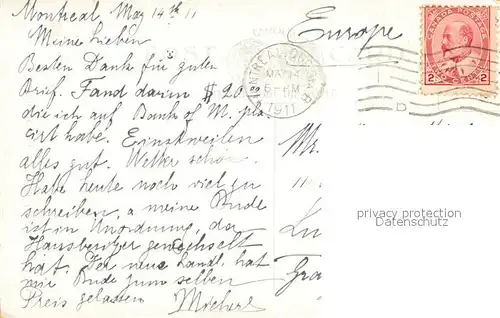 Montreal May 14th 11
Meine lieben
Besten Dank für guten
Brief. Fand darin $ 90.00
die ich auf Bank of M. pla-
cirt habe. Einstweilen
alles gut. Wetter schön.
Habe heute noch viel zu
schreiben, a meine Bude
ist in Unordnung, da
Hausbesitzer gewechselt
hat. Der neue Landl. hat
mir Bude zum selben
Preis gelassen
Europe
MONTREAL
MAY 14
PM
1911
CANADA POSTAGE
2 2
Mr.
Lu
Gra
privacy protection
Datenschutz